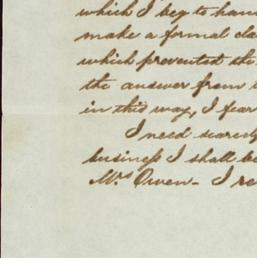 which I beg to han
make a formal cla
which prevented the
the answer from
in this way, I fear
I need scarcely
business I shall be
Mrs Owen - I re